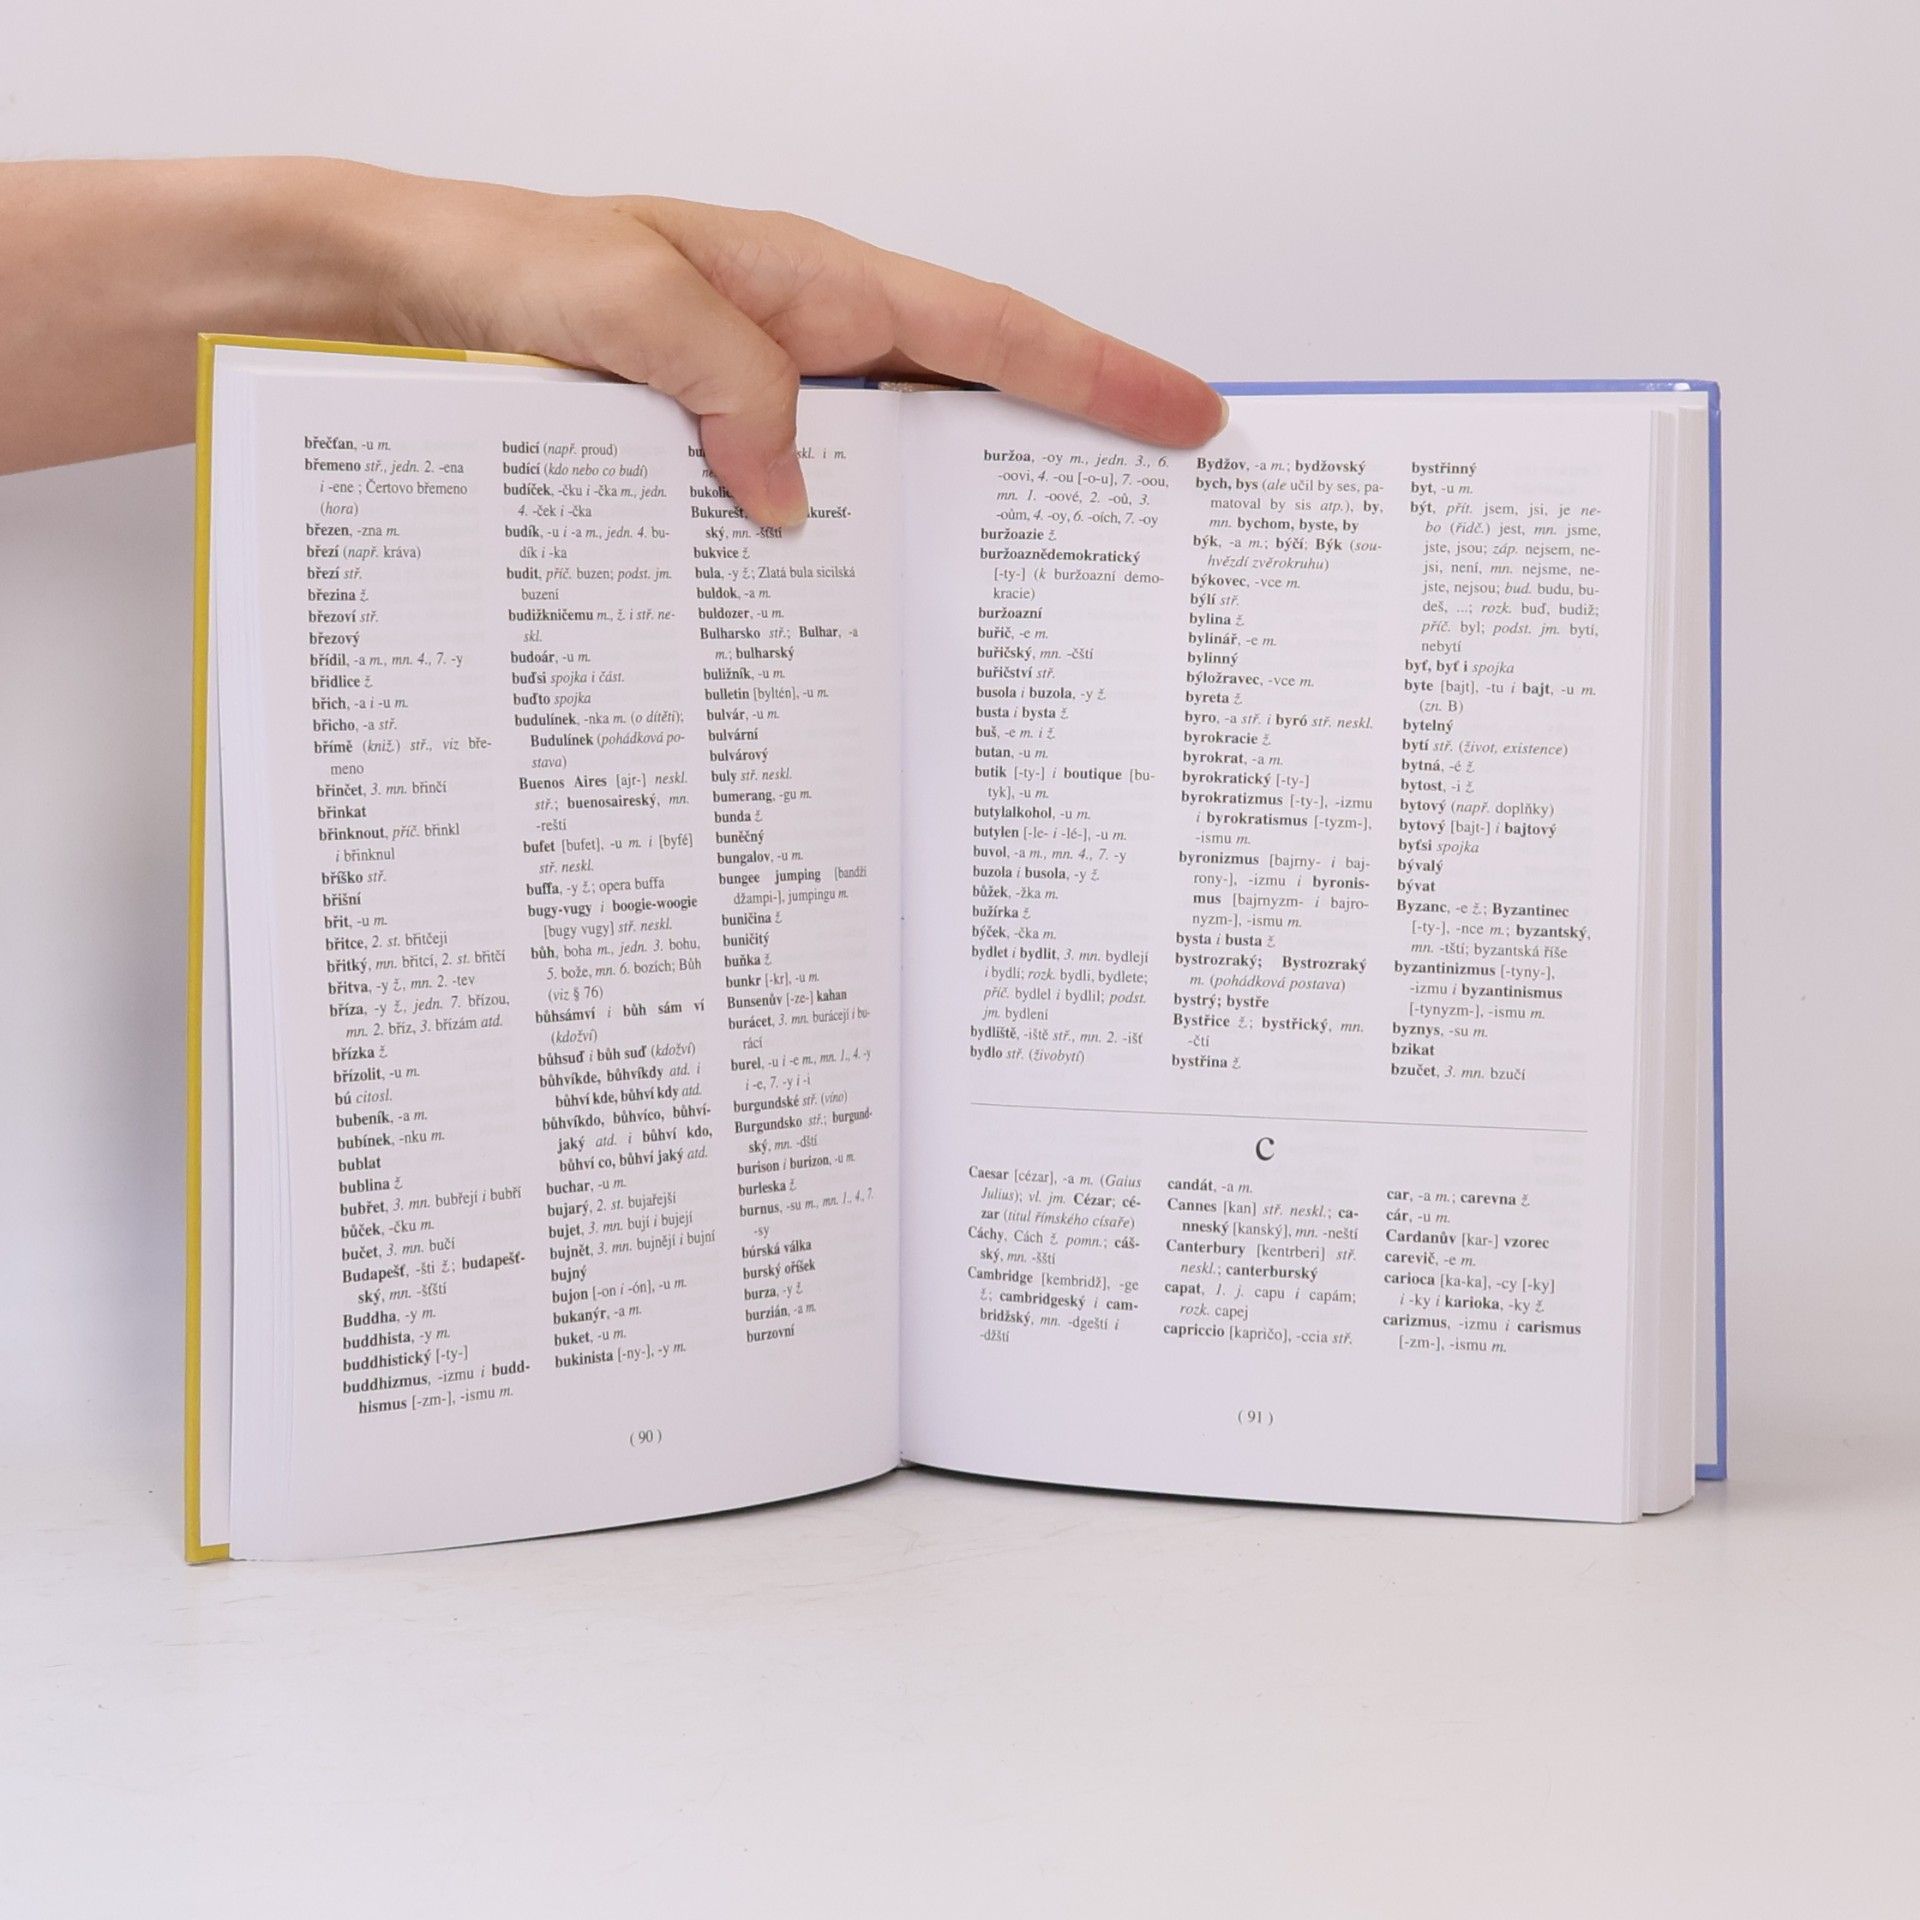 břečťan, -u m.
břemeno stř., jedn. 2. -ena
i -ene ; Čertovo břemeno
(hora)
březen, -zna m.
březí (např. kráva)
březí stř.
březina ž.
březoví stř.
březový
břídil, -a m., mn. 4., 7. -y
břidlice ž.
břich, -a i -u m.
břicho, -a stř.
břímě (kniž.) stř., viz bře-
meno
břinčet, 3. mn. břinčí
břinkat
břinknout, příč. břinkl
i břinknul
bříško stř.
břišní
břit, -u m.
břitce, 2. st. břitčeji
břitký, mn. břitcí, 2. st. břitčí
břitva, -y ž., mn. 2. -tev
bříza, -y ž., jedn. 7. břízou,
mn. 2. bříz, 3. břízám atd.
břízka ž.
břízolit, -u m.
bú citosl.
bubeník, -a m.
bubínek, -nku m.
bublat
bublina ž.
bubřet, 3. mn. bubřejí i bubří
bůček, -čku m.
bučet, 3. mn. bučí
Budapešť, -šti ž.; budapešť-
ský, mn. -šťští
Buddha, -y m.
buddhista, -y m.
buddhistický [-ty-]
buddhizmus, -izmu i budd-
hismus [-zm-], -ismu m.
budicí (např. proud)
budící (kdo nebo co budí)
budíček, -čku i -čka m., jedn.
4. -ček i -čka
budík, -u i -a m., jedn. 4. bu-
dík i -ka
budit, příč. buzen; podst. jm.
buzení
budižkničemu m., ž. i stř. ne-
skl.
budoár, -u m.
buďsi spojka i část.
buďto spojka
budulínek, -nka m. (o dítěti);
Budulínek (pohádková po-
stava)
Buenos Aires [ajr-] neskl.
stř.; buenosaireský, mn.
-reští
bufet [bufet], -u m. i [byfé]
stř. neskl.
buffa, -y ž.; opera buffa
bugy-vugy i boogie-woogie
[bugy vugy] stř. neskl.
bůh, boha m., jedn. 3. bohu,
5. bože, mn. 6. bozích; Bůh
(viz § 76)
bůhsámví i bůh sám ví
(kdoží)
bůhsuď i bůh suď (kdoží)
bůhvíkde, bůhvíkdy atd. i
bůhví kde, bůhví kdy atd.
bůhvíkdo, bůhvíco, bůhví-
jaký atd. i bůhví kdo,
bůhví co, bůhví jaký atd.
buchar, -u m.
bujarý, 2. st. bujařejší
bujet, 3. mn. bují i bujejí
bujnět, 3. mn. bujnějí i bujní
bujný
bujon [-on i -ón], -u m.
bukanýr, -a m.
buket, -u m.
bukinista [-ny-], -y m.
skl. i m.
Bukurešť,
ský, mn. -šťští
bukvice ž.
bula, -y ž.; Zlatá bula sicilská
buldok, -a m.
buldozer, -u m.
Bulharsko stř.; Bulhar, -a
m.; bulharský
buližník, -u m.
bulletin [byltén], -u m.
bulvár, -u m.
bulvární
bulvárový
buly stř. neskl.
bumerang, -gu m.
bunda ž.
buněčný
bungalov, -u m.
bungee jumping [bandži
džampi-], jumpingu m.
buničina ž.
buničitý
buňka ž.
bunkr [-kr], -u m.
Bunsenův [-ze-] kahan
burácet, 3. mn. burácejí i bu-
rácí
burel, -u i -e m., mn. 1., 4. -y
i -e, 7. -y i -i
burgundské stř. (víno)
Burgundsko stř.; burgund-
ský, mn. -dští
burison i burizon, -u m.
burleska ž.
burnus, -su m., mn. 1., 4., 7.
-sy
búrská válka
burský oříšek
burza, -y ž.
burzián, -a m.
burzovní
( 90 )
buržoa, -oy m., jedn. 3., 6.
-oovi, 4. -ou [-o-u], 7. -oou,
mn. 1. -oové, 2. -oů, 3.
-oům, 4. -oy, 6. -oích, 7. -oy
buržoazie ž.
buržoaznědemokratický
[-ty-] (k buržoazní demo-
kracie)
buržoazní
buřič, -e m.
buřičský, mn. -čští
buřičství stř.
busola i buzola, -y ž.
busta i bysta ž.
buš, -e m. i ž.
butan, -u m.
butik [-ty-] i boutique [bu-
tyk], -u m.
butylalkohol, -u m.
butylen [-le- i -lé-], -u m.
buvol, -a m., mn. 4., 7. -y
buzola i busola, -y ž.
bůžek, -žka m.
bužírka ž.
býček, -čka m.
bydlet i bydlit, 3. mn. bydlejí
i bydlí; rozk. bydli, bydlete;
příč. bydlel i bydlil; podst.
jm. bydlení
bydliště, -iště stř., mn. 2. -išť
bydlo stř. (živobytí)
Bydžov, -a m.; bydžovský
bych, bys (ale učil by ses, pa-
matoval by sis atp.), by,
mn. bychom, byste, by
býk, -a m.; býčí; Býk (sou-
hvězdí zvěrokruhu)
býkovec, -vce m.
býlí stř.
bylina ž.
bylinář, -e m.
bylinný
býložravec, -vce m.
byreta ž.
byro, -a stř. i byró stř. neskl.
byrokracie ž.
byrokrat, -a m.
byrokratický [-ty-]
byrokratizmus [-ty-], -izmu
i byrokratismus [-tyzm-],
-ismu m.
byronizmus [bajrny- i baj-
rony-], -izmu i byronis-
mus [bajrnyzm- i bajro-
nyzm-], -ismu m.
bysta i busta ž.
bystrozraký; Bystrozraký
m. (pohádková postava)
bystrý; bystře
Bystřice ž.; bystřický, mn.
-čtí
bystřina ž.
bystřinný
byt, -u m.
být, přít. jsem, jsi, je ne-
bo (řidč.) jest, mn. jsme,
jste, jsou; záp. nejsem, ne-
jsi, není, mn. nejsme, ne-
jste, nejsou; bud. budu, bu-
deš, ...; rozk. buď, budiž;
příč. byl; podst. jm. bytí,
nebytí
byť, byť i spojka
byte [bajt], -tu i bajt, -u m.
(zn. B)
bytelný
bytí stř. (život, existence)
bytná, -é ž.
bytost, -i ž.
bytový (např. doplňky)
bytový [bajt-] i bajtový
byťsi spojka
bývalý
bývat
Byzanc, -e ž.; Byzantinec
[-ty-], -nce m.; byzantský,
mn. -tští; byzantská říše
byzantinizmus [-tyny-],
-izmu i byzantinismus
[-tynyzm-], -ismu m.
byznys, -su m.
bzikat
bzučet, 3. mn. bzučí
C
Caesar [cézar], -a m. (Gaius
Julius); vl. jm. Cézar; cé-
zar (titul římského císaře)
Cáchy, Cách ž. pomn.; cáš-
ský, mn. -šští
Cambridge [kembridž], -ge
ž.; cambridgeský i cam-
bridžský, mn. -dgeští i
-džští
candát, -a m.
Cannes [kan] stř. neskl.; ca-
nneský [kanský], mn. -neští
Canterbury [kentrberi] stř.
neskl.; canterburský
capat, 1. j. capu i capám;
rozk. capej
capriccio [kapričo], -ccia stř.
car, -a m.; carevna ž.
cár, -u m.
Cardanův [kar-] vzorec
carevič, -e m.
carioca [ka-ka], -cy [-ky]
i -ky i karioka, -ky ž.
carizmus, -izmu i carismus
[-zm-], -ismu m.
( 91 )